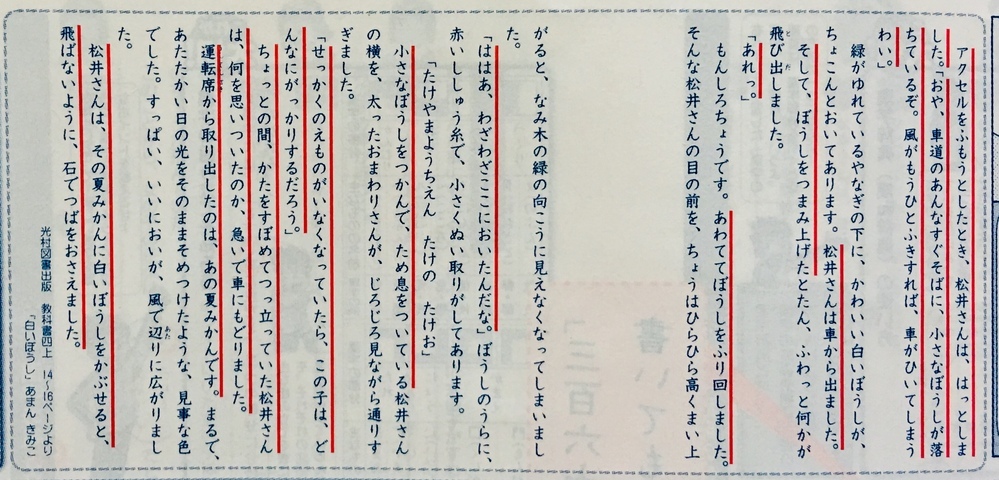 アクセルをふもうとしたとき、松井さんは、はっとしま
した。「おや、車道のあんなすぐそばに、小さなぼうしが落
ちているぞ。風がもうひとふきすれば、車がひいてしまう
わい。」
緑がゆれているやなぎの下に、かわいい白いぼうしが、
ちょこんとおいてあります。松井さんは車から出ました。
そして、ぼうしをつまみ上げたとたん、ふわっと何かが
飛び出しました。
「あれっ。」
もんしろちょうです。あわててぼうしをふり回しました。
そんな松井さんの目の前を、ちょうはひらひら高くまい上
がると、なみ木の緑の向こうに見えなくなってしまいまし
た。
「ははあ、わざわざここにおいたんだな。」ぼうしのうらに、
赤いししゅう糸で、小さくぬい取りがしてあります。
「たけやまようちえん たけの たけお」
小さなぼうしをつかんで、ため息をついている松井さん
の横を、太ったおまわりさんが、じろじろ見ながら通りす
ぎました。
「せっかくのえものがいなくなっていたら、この子は、ど
んなにがっかりするだろう。」
ちょっとの間、かたをすぼめてつっ立っていた松井さん
は、何を思いついたのか、急いで車にもどりました。
運転席から取り出したのは、あの夏みかんです。まるで、
あたたかい日の光をそのままそめつけたような、見事な色
でした。すっぱい、いいにおいが、風で辺りに広がりまし
た。
松井さんは、その夏みかんに白いぼうしをかぶせると、
飛ばないように、石でつばをおさえました。
光村図書出版 教科書四上 14〜16ページより
「白いぼうし」あまん きみこ
書いてま
「三百六